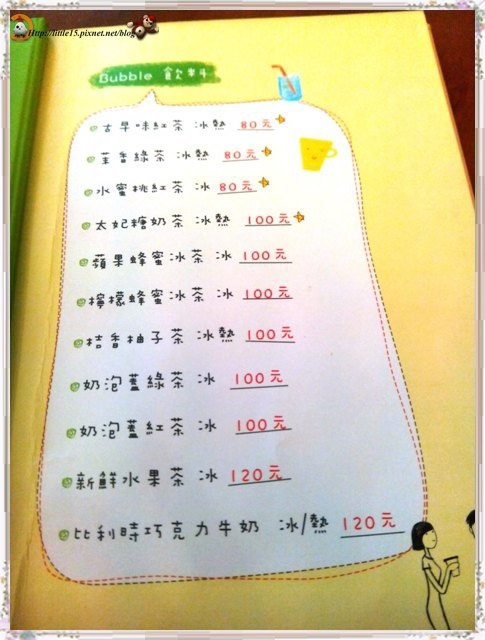 Http://little15.pixnet.net/blog
Bubble 飲料
古早味紅茶 冰熱 80元
茉香綠茶 冰熱 80元
水蜜桃紅茶 冰 80元
太妃糖奶茶 冰熱 100元
蘋果蜂蜜冰茶 冰 100元
檸檬蜂蜜冰茶 冰 100元
桔香柚子茶 冰熱 100元
奶泡蓋綠茶 冰 100元
奶泡蓋紅茶 冰 100元
新鮮水果茶 冰 120元
比利時巧克力牛奶 冰/熱 120元